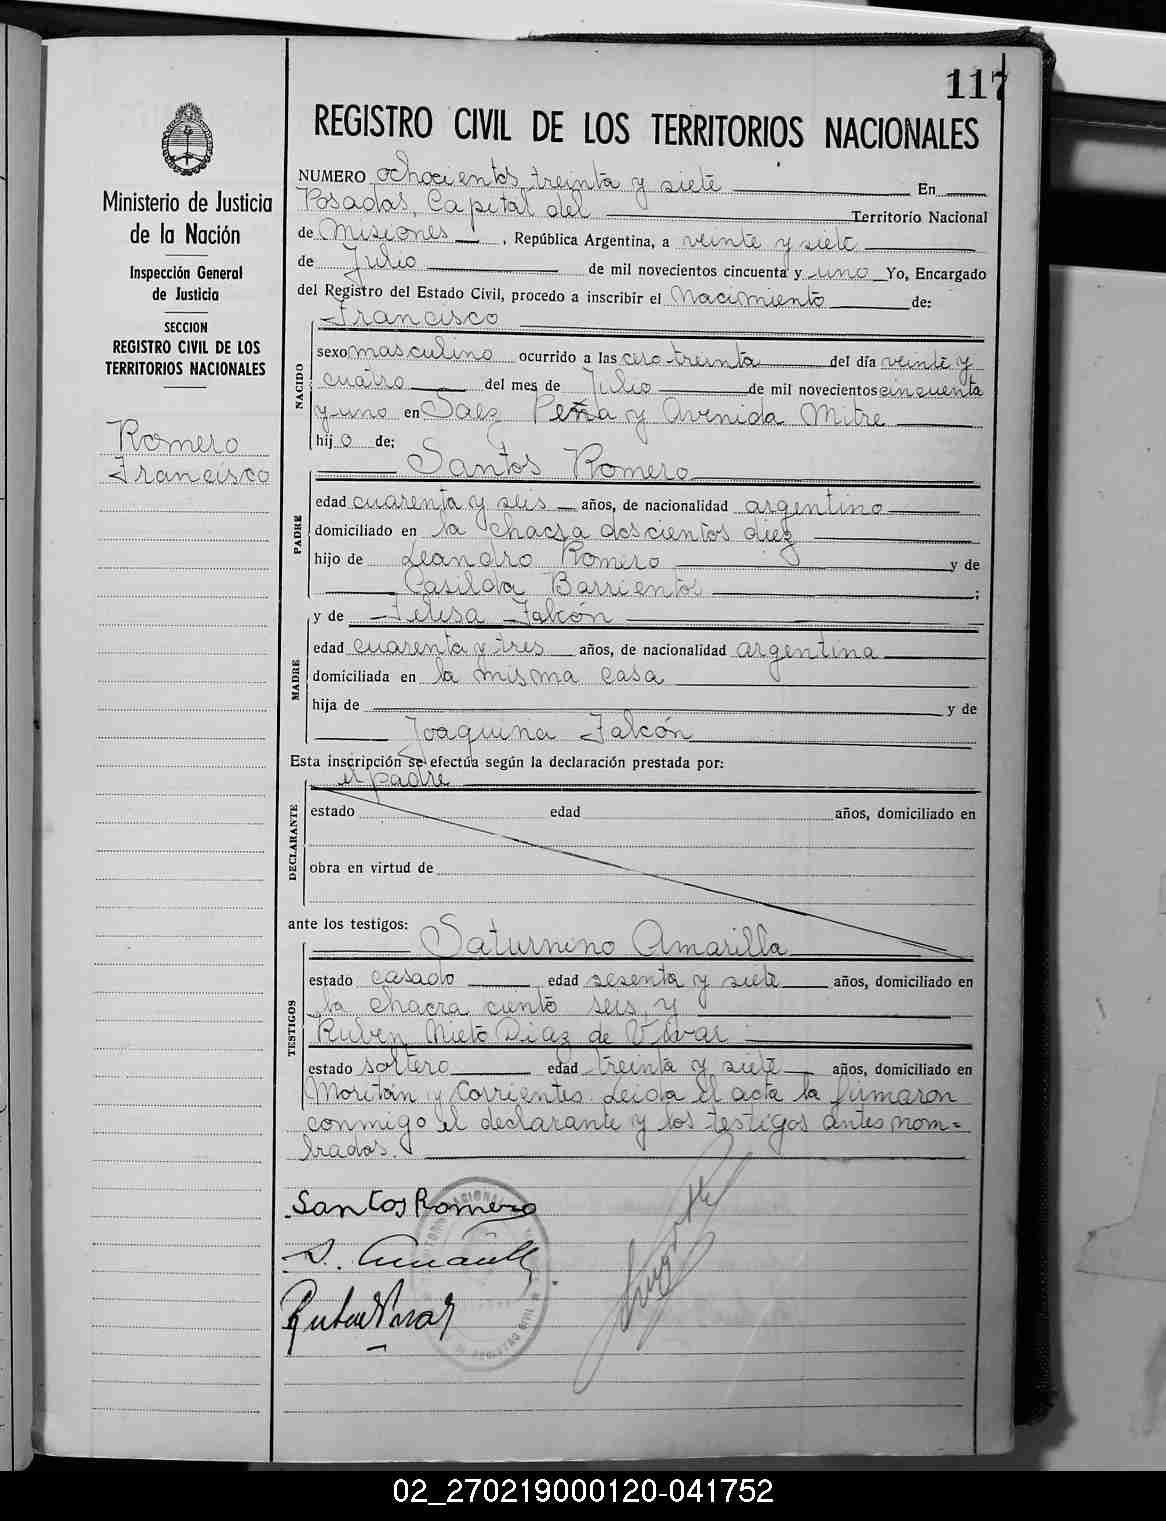 117
REGISTRO CIVIL DE LOS TERRITORIOS NACIONALES
Ministerio de Justicia
de la Nación
Inspección General
de Justicia
SECCION
REGISTRO CIVIL DE LOS
TERRITORIOS NACIONALES
Romero
Francisco
NUMERO ochocientos treinta y siete En
Posadas, Capital del Territorio Nacional
de Misiones, República Argentina, a veinte y siete
de Julio de mil novecientos cincuenta y uno Yo, Encargado
del Registro del Estado Civil, procedo a inscribir el Nacimiento de:
Francisco
NACIDO
sexo masculino ocurrido a las cero treinta del día veinte y
cuatro del mes de Julio de mil novecientos cincuenta
y uno en Saez Peña y Avenida Mitre
hijo de:
Santos Romero
PADRE
edad cuarenta y seis años, de nacionalidad argentino
domiciliado en la chacra doscientos diez
hijo de Leandro Romero y de
Casilda Barrientos;
y de Felisa Falcón
MADRE
edad cuarenta y tres años, de nacionalidad argentina
domiciliada en la misma casa
hija de y de
Joaquina Falcón
Esta inscripción se efectúa según la declaración prestada por:
el padre
DECLARANTE
estado edad años, domiciliado en
obra en virtud de
ante los testigos:
Saturnino Amarilla
TESTIGOS
estado casado edad sesenta y siete años, domiciliado en
la chacra ciento seis, y
Ruben Nieto Diaz de Vivar
estado soltero edad treinta y siete años, domiciliado en
Moritán y Corrientes. Leida el acta la firmaron
conmigo el declarante y los testigos antes nom=
brados.
Santos Romero
S. Amarilla
Ruben Vivar
02_270219000120-041752